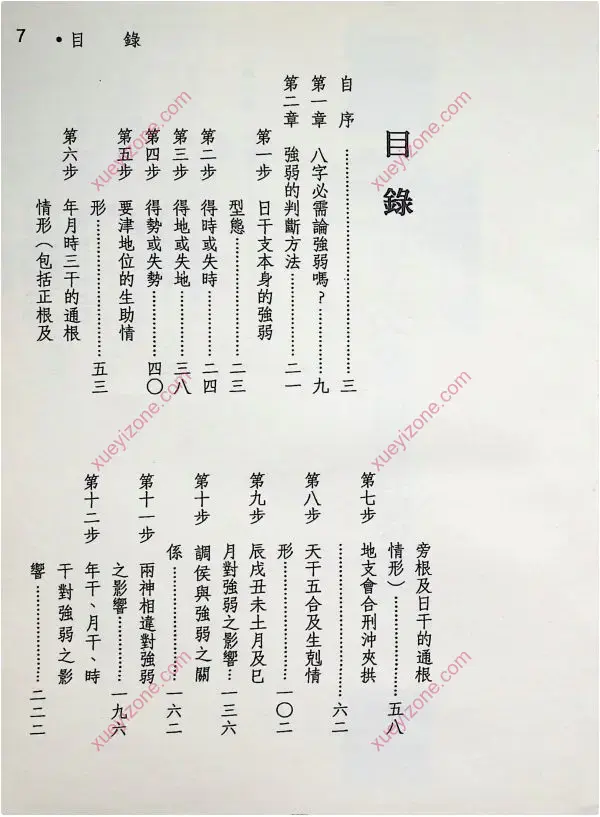 7 •目錄
目錄
自序……三
第一章 八字必需論強弱嗎？……九
第二章 強弱的判斷方法……二一
第一步 日干支本身的強弱
型態……二三
第二步 得時或失時……二四
第三步 得地或失地……三八
第四步 得勢或失勢……四〇
第五步 要津地位的生助情
形……五三
第六步 年月時三干的通根
情形（包括正根及
旁根及日干的通根
情形）……五八
第七步 地支會合刑沖夾拱
……六二
第八步 天干五合及生剋情
形……一〇二
第九步 辰戌丑未土月及巳
月對強弱之影響…一三六
第十步 調侯與強弱之關
係……一六二
第十一步 兩神相違對強弱
之影響……一九六
第十二步 年干、月干、時
干對強弱之影
響……二二二
xueyizone.com
xueyizone.com
xueyizone.com
xueyizone.com
xueyizone.com
xueyizone.com